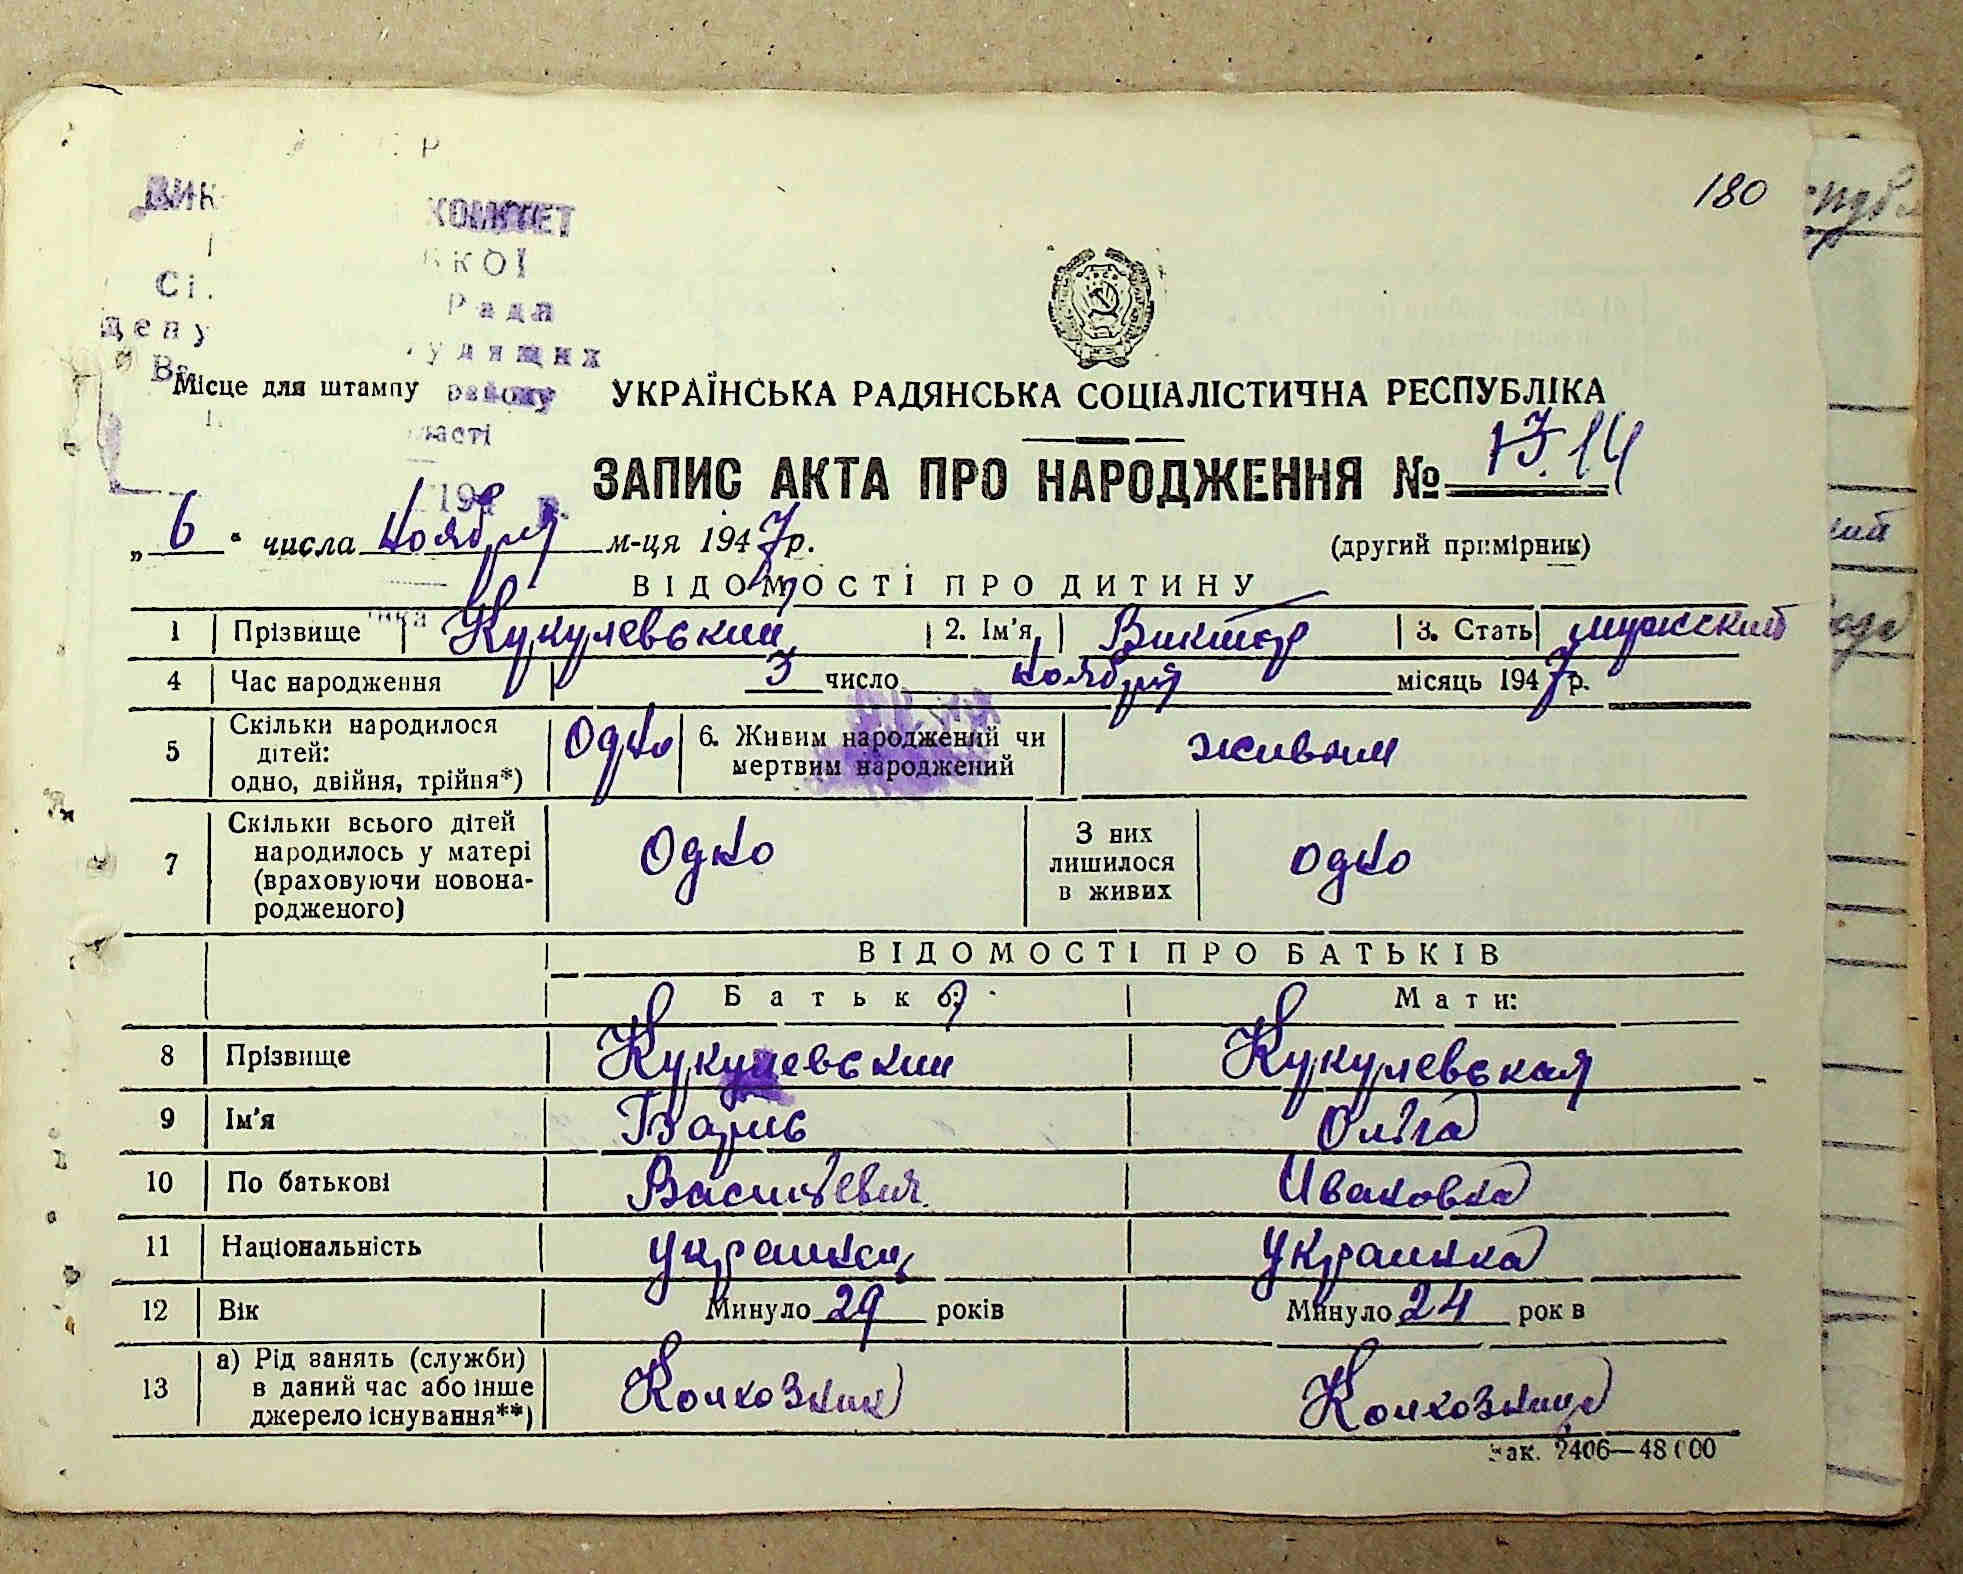 180
КОМІТЕТ
Рада
Місце для штампу району
УКРАЇНСЬКА РАДЯНСЬКА СОЦІАЛІСТИЧНА РЕСПУБЛІКА
ЗАПИС АКТА ПРО НАРОДЖЕННЯ № 13. 14
„6“ числа ноября м-ця 1947 р.
(другий примірник)
ВІДОМОСТІ ПРО ДИТИНУ
1 Прізвище Кукулевский 2. Ім'я Виктор 3. Стать мужский
4 Час народження 3 число ноября місяць 1947 р.
5 Скільки народилося дітей: одно, двійня, трійня*) Одно 6. Живим народжений чи мертвим народжений живым
7 Скільки всього дітей народилось у матері (враховуючи новонародженого) Одно З них лишилося в живих одно
ВІДОМОСТІ ПРО БАТЬКІВ
Батько: Мати:
8 Прізвище Кукулевский Кукулевская
9 Ім'я Борис Ольга
10 По батькові Васильевич Ивановна
11 Національність украинец украинка
12 Вік Минуло 29 років Минуло 24 років
13 а) Рід занять (служби) в даний час або інше джерело існування**) Колхозник Колхозница
Зак. 2406—48000